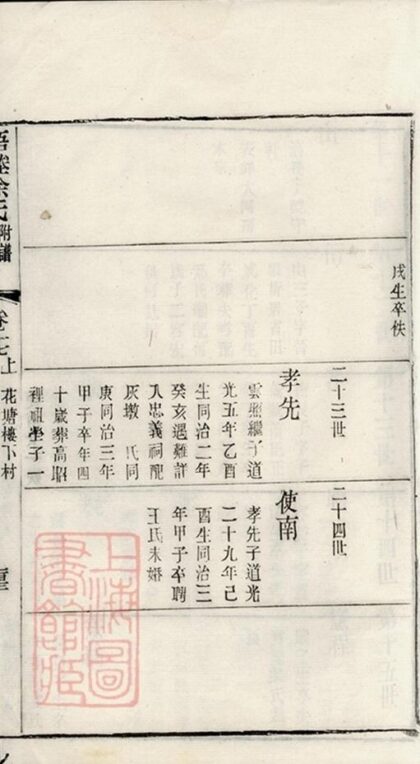 戌生卒佚
二十三世
孝先
雲照繼子道
光五年乙酉
生同治二年
癸亥遇難詳
入忠義祠配
灰墩 氏同
庚同治三年
甲子卒年四
十歲葬高昭
裡祖塋子一
二十四世
使南
孝先子道光
二十九年己
酉生同治三
年甲子卒聘
王氏未婚
余氏附譜
卷七上
花塘樓下村
上海圖書館藏